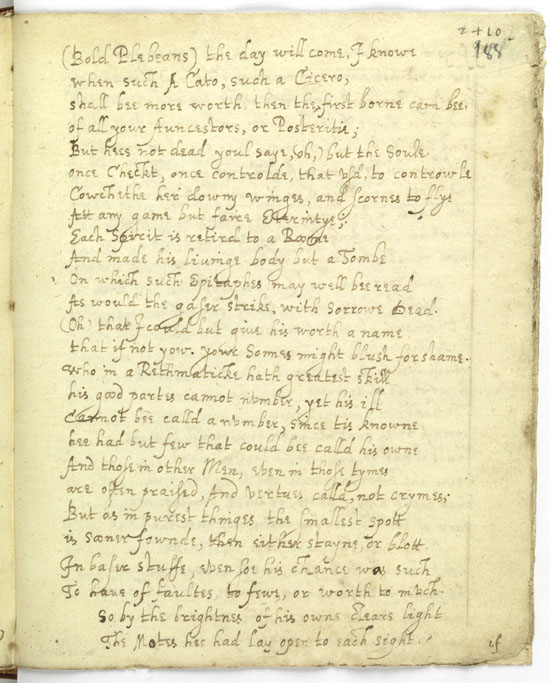 2+10
188
(Bold Plebeans) the day will come, I knowe
when such A Cato, such a Cicero,
shall bee more worth then the first borne cann bee
of all your Auncestors, or Posteritie;
But hees not dead youl saye, (oh,) but the Soule
once Checkt, once controlde, that vsd, to controwle
Cowcheth her downy winges, and scornes to flye
Att any game but faire Eternitye;
Each Spirit is retird to a Roome
And made his liuinge body but a Tombe
On which such Epitaphes may well bee read
As would the gaser strike, with sorrowe Dead.
(Oh) that I could but giue his worth a name
that if not yow. your Sonnes might blush for shame.
who in a Rethmaticke hath greatest skill
his good partes cannot number, yet his ill
Cannot bee calld a number, since tis knowne
hee had but few that could bee calld his owne
And those in other Men, even in those tymes
are often praised, And vertues calld, not crymes;
But as in purest thinges the smallest spott
is sooner fownde, then either stayne, or blott
In baser stuffe, even soe his chance was such
To haue of faultes, to fewe, or worth to much.
So by the brightnes of his owne cleare light
The Motes hee had lay open to each sight.
if